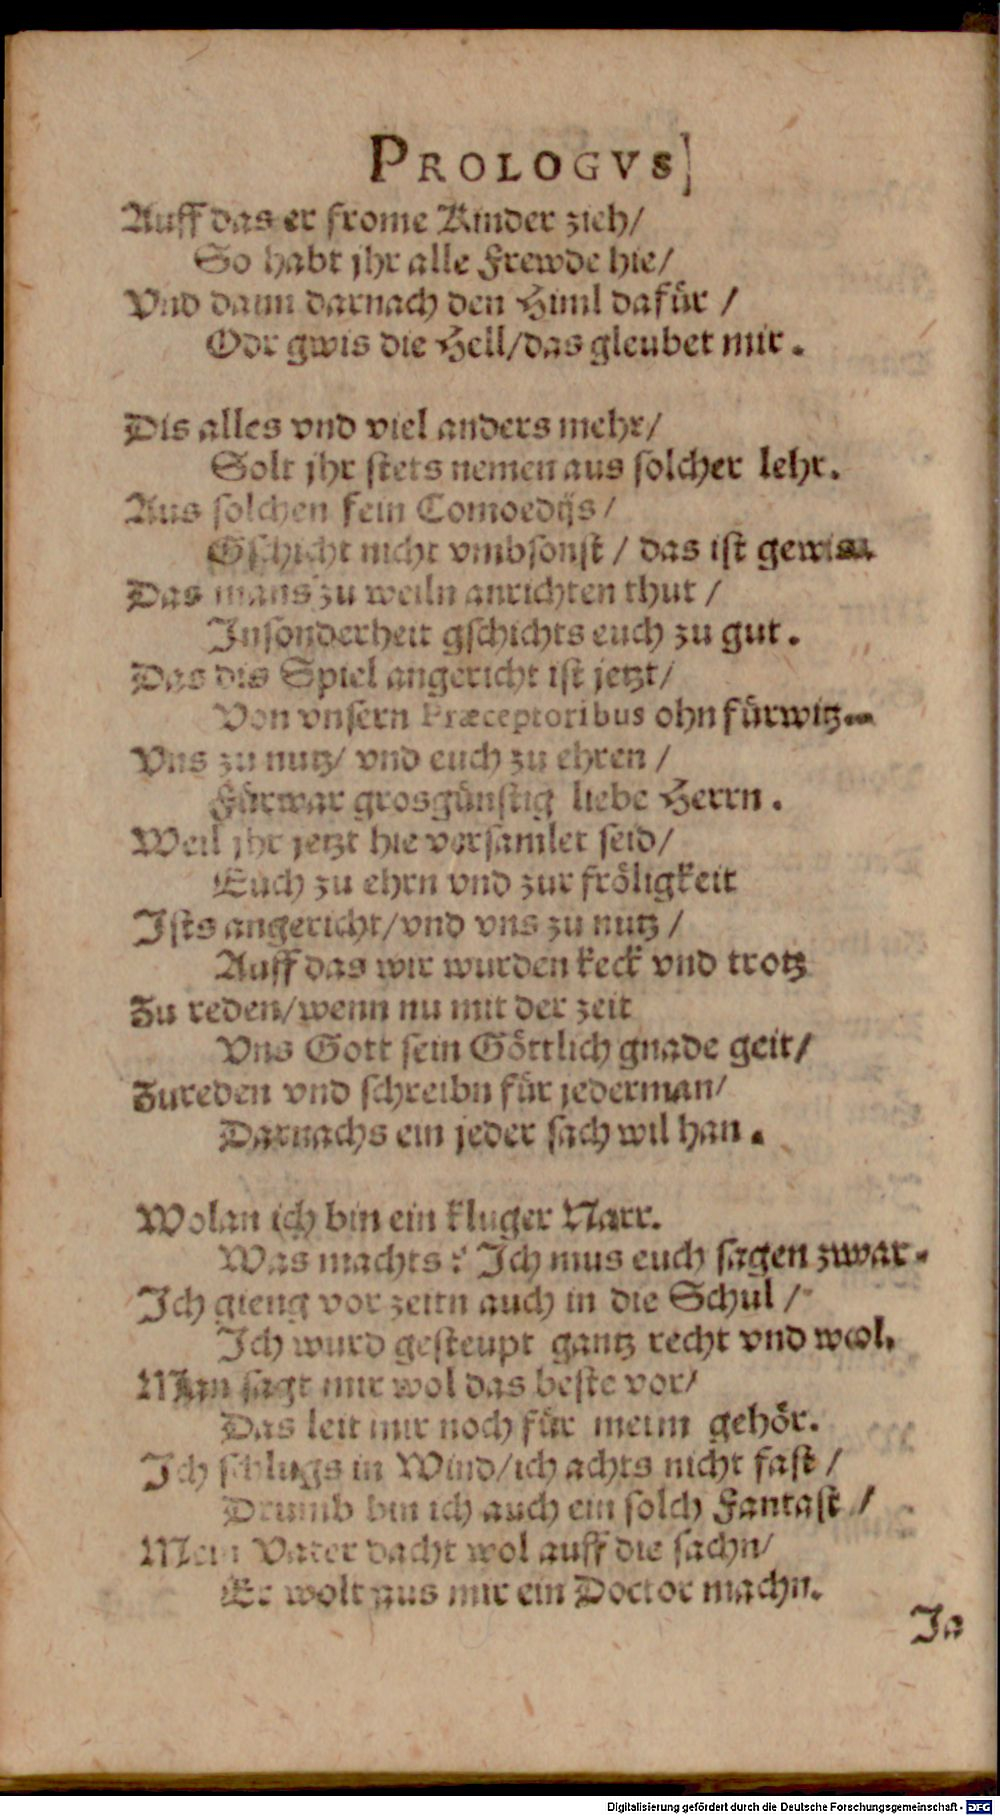 PROLOGVS]
Auff das er frome Kinder zieh/
So habt jhr alle Frewde hie/
Vnd dann darnach den Himl dafür /
Odr gwis die Hell/das gleubet mir.
Dis alles vnd viel anders mehr/
Solt jhr stets nemen aus solcher lehr.
Aus solchen fein Comoedijs/
Gschicht nicht vmbsonst / das ist gewis.
Das mans zu weiln anrichten thut /
Insonderheit gschichts euch zu gut.
Das dis Spiel angericht ist jetzt/
Von vnsern Præceptoribus ohn fürwitz.
Vns zu nutz/ vnd euch zu ehren /
Fürwar grosgünstig liebe Herrn.
Weil jhr jetzt hie versamlet seid/
Euch zu ehrn vnd zur fröligkeit
Ists angericht/vnd vns zu nutz /
Auff das wir wurden keck vnd trotz
Zu reden/wenn nu mit der zeit
Vns Gott sein Göttlich gnade geit/
Zureden vnd schreibn für jederman/
Darnachs ein jeder sach wil han.
Wolan ich bin ein kluger Narr.
Was machts? Ich mus euch sagen zwar.
Ich gieng vor zeitn auch in die Schul /
Ich wurd gesteupt gantz recht vnd wol.
Man sagt mir wol das beste vor/
Das leit mir noch für meim gehör.
Ich schlugs in Wind/ich achts nicht fast /
Drumb bin ich auch ein solch Fantast /
Mein Vater dacht wol auff die sachn/
Er wolt aus mir ein Doctor machn.
Ja
Digitalisierung gefördert durch die Deutsche Forschungsgemeinschaft - DFG